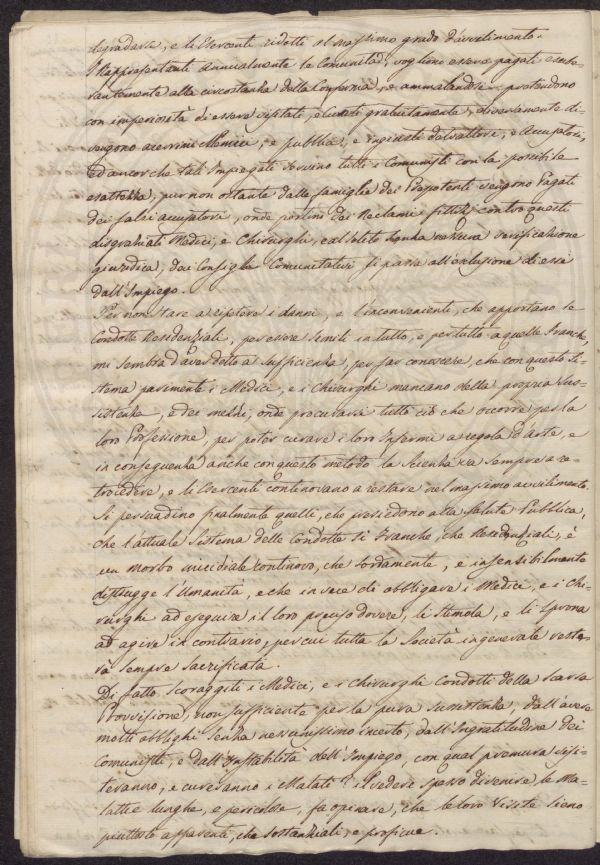 degradarsi, e li Esercenti ridotti al massimo grado d'avvilimento.
I Rappresentanti annualmente la Comunità, vogliono essere pagati esube-
rantemente alla circostanza della Conferma, ed ammalandosi pretendono
con imperiosità di essere visitati, e curati gratuitamente, diversamente di-
vengono acerrimi Nemici, e pubblici, e ingiusti detrattori, e Accusatori,
ed ancorchè tali Impiegati servino tutti i Comunisti con la possibile
esattezza, pur non ostante dalle famiglie dei Prepotenti vengono Pagati
dei falsi accusatori, onde portino dei Reclami fittizj contro questi
disgraziati Medici, e Chirurghi, e al solito senza nessuna verificazione
giuridica, dai Consiglj Comunitativi si passa all'esclusione di essi
dall'Impiego.
Per non stare a ripetere i danni, e l'inconvenienti, che apportano le
Condotte Residenziali, per essere simili in tutto, e per tutto a quelle Franche,
mi sembra d'aver detto a sufficienza, per far conoscere, che con questo Si-
stema parimente i Medici, e i Chirurghi mancano della propria Sus-
sistenza, e dei mezzi, onde procurarsi tutto ciò che occorre per la
loro Professione, per poter curare i loro Infermi a regola d'arte, e
in conseguenza anche con questo metodo la Scienza va sempre a re-
trocedere, e li Esercenti continovano a restare nel massimo avvilimento.
Si persuadino finalmente quelli, che presiedono alla Salute Pubblica,
che l'attuale Sistema delle Condotte sì Franche, che Residenziali, è
un Morbo micidiale continovo, che sordamente, e insensibilmente
distrugge l'Umanità, e che in vece di obbligare i Medici, e i Chi-
rurghi ad eseguire il loro preciso dovere, li Stimola, e li Sprona
ad agire in contrario, per cui tutta la Società in generale reste-
rà sempre sacrificata.
Di fatto Scoraggiti i Medici, e i Chirurghi Condotti della scarsa
Provvisione, non sufficiente per la pura sussistenza, dall'avere
molti obblighi senza nessunissimo incerto, dall'Ingratitudine dei
Comunisti, e dall'Instabilità dell'Impiego, con qual premura visi-
teranno, e cureranno i Malati? il vedere spesso divenire le Ma-
lattie lunghe, e pericolose, fa opinare, che le loro Visite sieno
piuttosto apparenti, che sostanziali, e proficue.